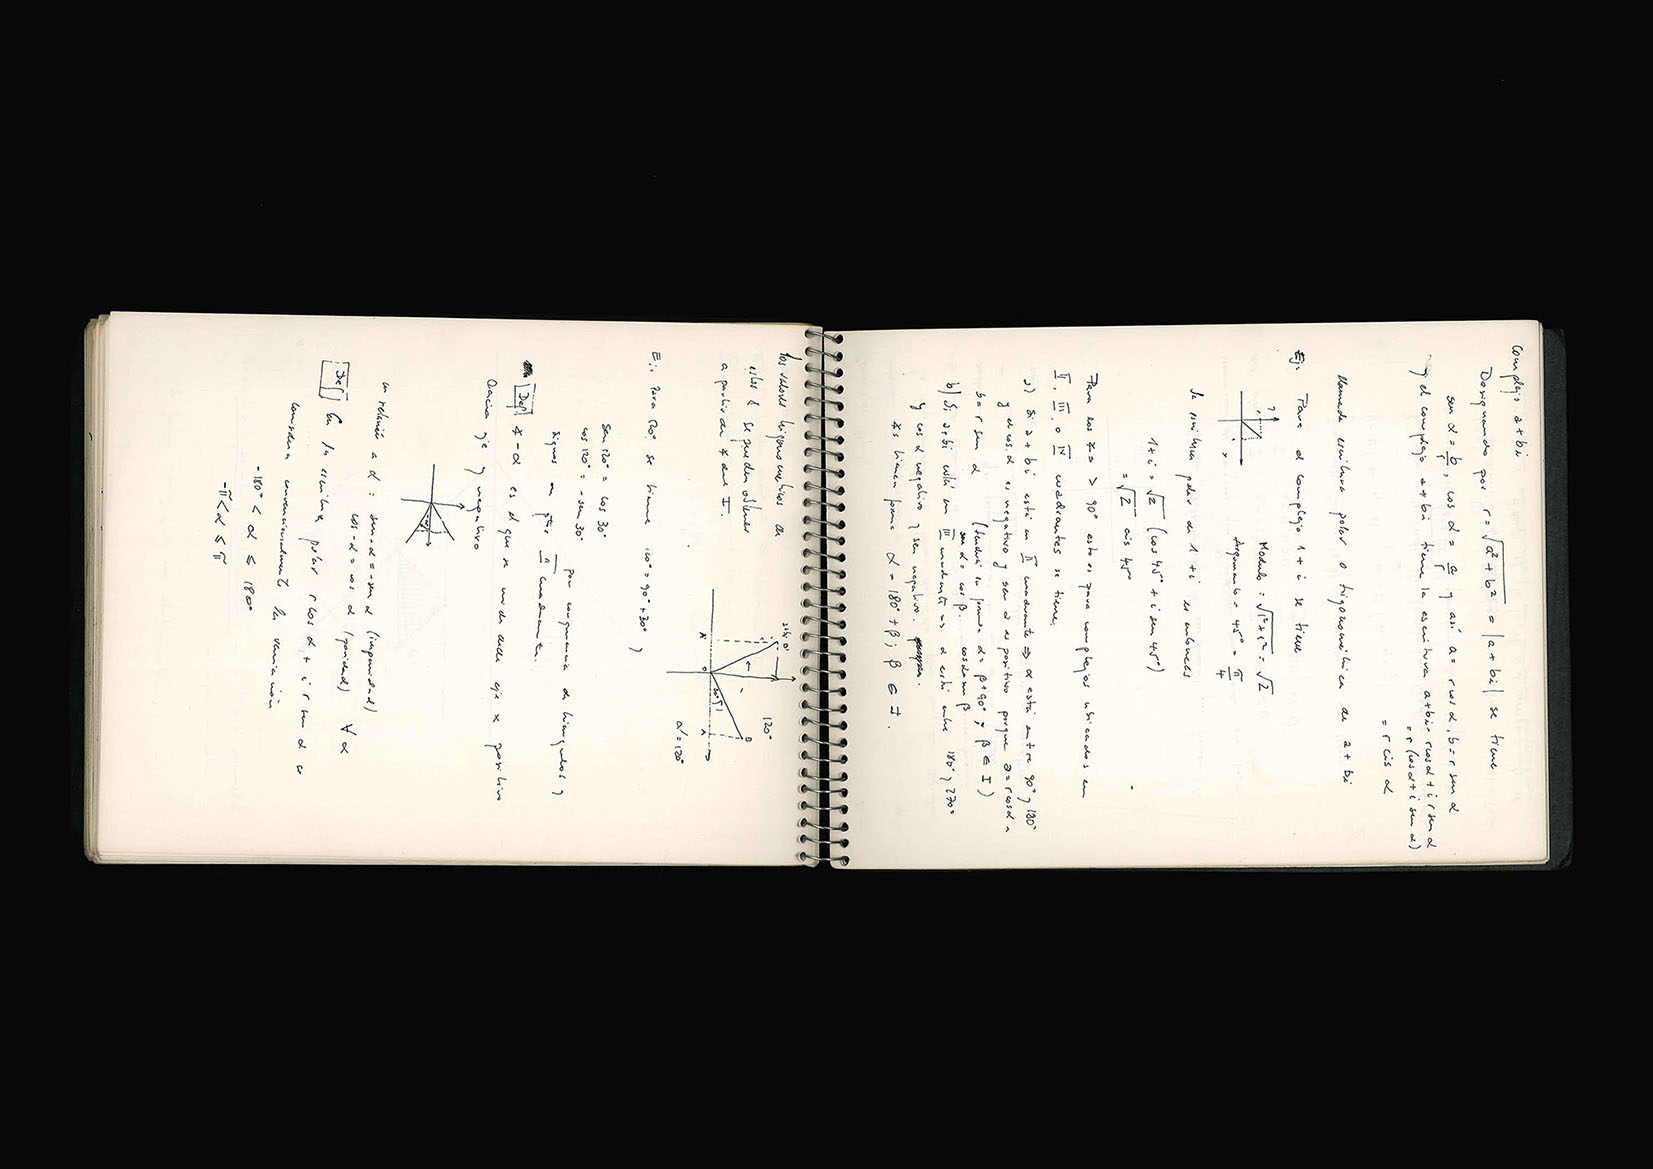 complejo a+bi
Designando por r = √a²+b² = |a+bi| se tiene
sen α = b/r, cos α = a/r y así a = r cos α, b = r sen α
y el complejo a+bi tiene la escritura a+bi = r cos α + i r sen α
= r (cos α + i sen α)
= r cis α
llamada escritura polar o trigonométrica de a+bi
Ej: Para el complejo 1+i se tiene
Módulo: √1²+1² = √2
Argumento = 45° = π/4
la escritura polar de 1+i es entonces
1+i = √2 (cos 45° + i sen 45°)
= √2 cis 45°
Para los ∢s > 90° esto es para complejos ubicados en
II, III, o IV cuadrantes se tiene,
a) Si a+bi está en II cuadrante ⇒ α está entre 90° y 180°
y el cos α es negativo y sen α es positivo porque a = r cos α ∧
b = r sen α (tendrá la forma α = β+90° y β ∈ I)
sen α = cos β cos α = -sen β
b) Si a+bi está en III cuadrante ⇒ α está entre 180° y 270°
y cos α negativo y sen negativo.
∢s tienen forma α = 180° + β; β ∈ I.
los valores trigonométricos de
estos ∢ se pueden obtener
a partir de ∢ del I.
120°
30°
B
A'
0
A
α = 120°
Ej: Para 120° se tiene 120° = 90° + 30° y
sen 120° = cos 30°
cos 120° = - sen 30°
por congruencia de triángulos y
signos en el II cuadrante.
Def ∢ -α es el que se mide desde eje x positivo
hacia eje y negativo
en relación a α: sen -α = - sen α (imparidad)
cos -α = cos α (paridad) ∀ α
Def En la escritura polar r cos α + i r sen α se
considera convencionalmente la variación
-180° < α ≤ 180°
-π < α ≤ π